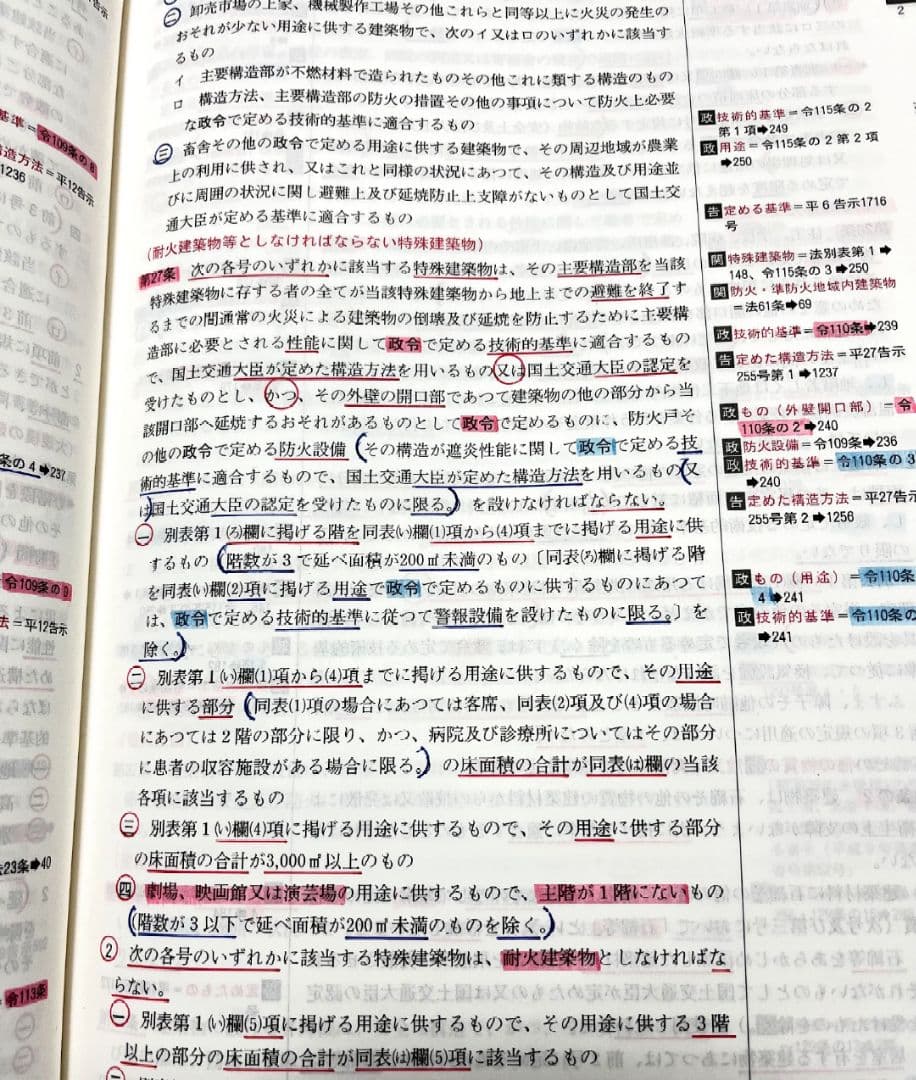 ㊁ 卸売市場の上家、機械製作工場その他これらと同等以上に火災の発生の
おそれが少ない用途に供する建築物で、次のイ又はロのいずれかに該当す
るもの
イ 主要構造部が不燃材料で造られたものその他これに類する構造のもの
ロ 構造方法、主要構造部の防火の措置その他の事項について防火上必要
な政令で定める技術的基準に適合するもの
㊂ 畜舎その他の政令で定める用途に供する建築物で、その周辺地域が農業
上の利用に供され、又はこれと同様の状況にあつて、その構造及び用途並
びに周囲の状況に関し避難上及び延焼防止上支障がないものとして国土交
通大臣が定める基準に適合するもの
(耐火建築物等としなければならない特殊建築物)
第27条 次の各号のいずれかに該当する特殊建築物は、その主要構造部を当該
特殊建築物に存する者の全てが当該特殊建築物から地上までの避難を終了す
るまでの間通常の火災による建築物の倒壊及び延焼を防止するために主要構
造部に必要とされる性能に関して政令で定める技術的基準に適合するもの
で、国土交通大臣が定めた構造方法を用いるもの又は国土交通大臣の認定を
受けたものとし、かつ、その外壁の開口部であつて建築物の他の部分から当
該開口部へ延焼するおそれがあるものとして政令で定めるものに、防火戸そ
の他の政令で定める防火設備(その構造が遮炎性能に関して政令で定める技
術的基準に適合するもので、国土交通大臣が定めた構造方法を用いるもの又
は国土交通大臣の認定を受けたものに限る。)を設けなければならない。
㊀ 別表第1(ろ)欄に掲げる階を同表(い)欄(1)項から(4)項までに掲げる用途に供
するもの(階数が3で延べ面積が200㎡未満のもの〔同表(ろ)欄に掲げる階
を同表(い)欄(2)項に掲げる用途で政令で定めるものに供するものにあつて
は、政令で定める技術的基準に従つて警報設備を設けたものに限る。〕を
除く。)
㊁ 別表第1(い)欄(1)項から(4)項までに掲げる用途に供するもので、その用途
に供する部分(同表(1)項の場合にあつては客席、同表(2)項及び(4)項の場合
にあつては2階の部分に限り、かつ、病院及び診療所についてはその部分
に患者の収容施設がある場合に限る。)の床面積の合計が同表(は)欄の当該
各項に該当するもの
㊂ 別表第1(い)欄(4)項に掲げる用途に供するもので、その用途に供する部分
の床面積の合計が3,000㎡以上のもの
㊃ 劇場、映画館又は演芸場の用途に供するもので、主階が1階にないもの
(階数が3以下で延べ面積が200㎡未満のものを除く。)
② 次の各号のいずれかに該当する特殊建築物は、耐火建築物としなければな
らない。
㊀ 別表第1(い)欄(5)項に掲げる用途に供するもので、その用途に供する3階
以上の部分の床面積の合計が同表(は)欄(5)項に該当するもの
2
政 技術的基準=令115条の2
第1項➡249
政 用途=令115条の2第2項
➡250
告 定める基準=平6告示1716
号
関 特殊建築物=法別表第1➡
148、令115条の3➡250
関 防火・準防火地域内建築物
=法61条➡69
政 技術的基準=令110条➡239
告 定めた構造方法=平27告示
255号第1➡1237
政 もの(外壁開口部)=令
110条の2➡240
政 防火設備=令109条➡236
政 技術的基準=令110条の3
➡240
告 定めた構造方法=平27告示
255号第2➡1256
政 もの(用途)=令110条
4➡241
政 技術的基準=令110条の
➡241
基準=令109条の8
造方法=平12告示
1236
条の4➡237
令109条の9
法=平12告示
法23条➡40
=令113条